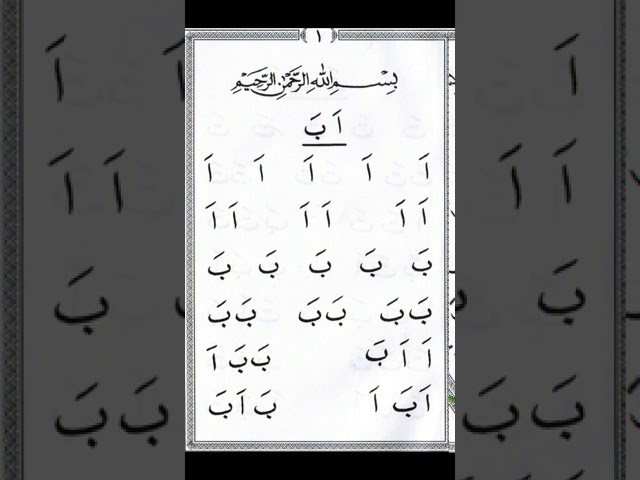 ١
بِسْمِ اللهِ الرَّحْمٰنِ الرَّحِيْمِ
اَ بَ
اَ اَ اَ اَ اَ
اَ اَ اَ اَ اَ اَ
بَ بَ بَ بَ بَ
بَ بَ بَ بَ بَ بَ
اَ اَ بَ بَ بَ اَ
اَ بَ اَ بَ اَ بَ